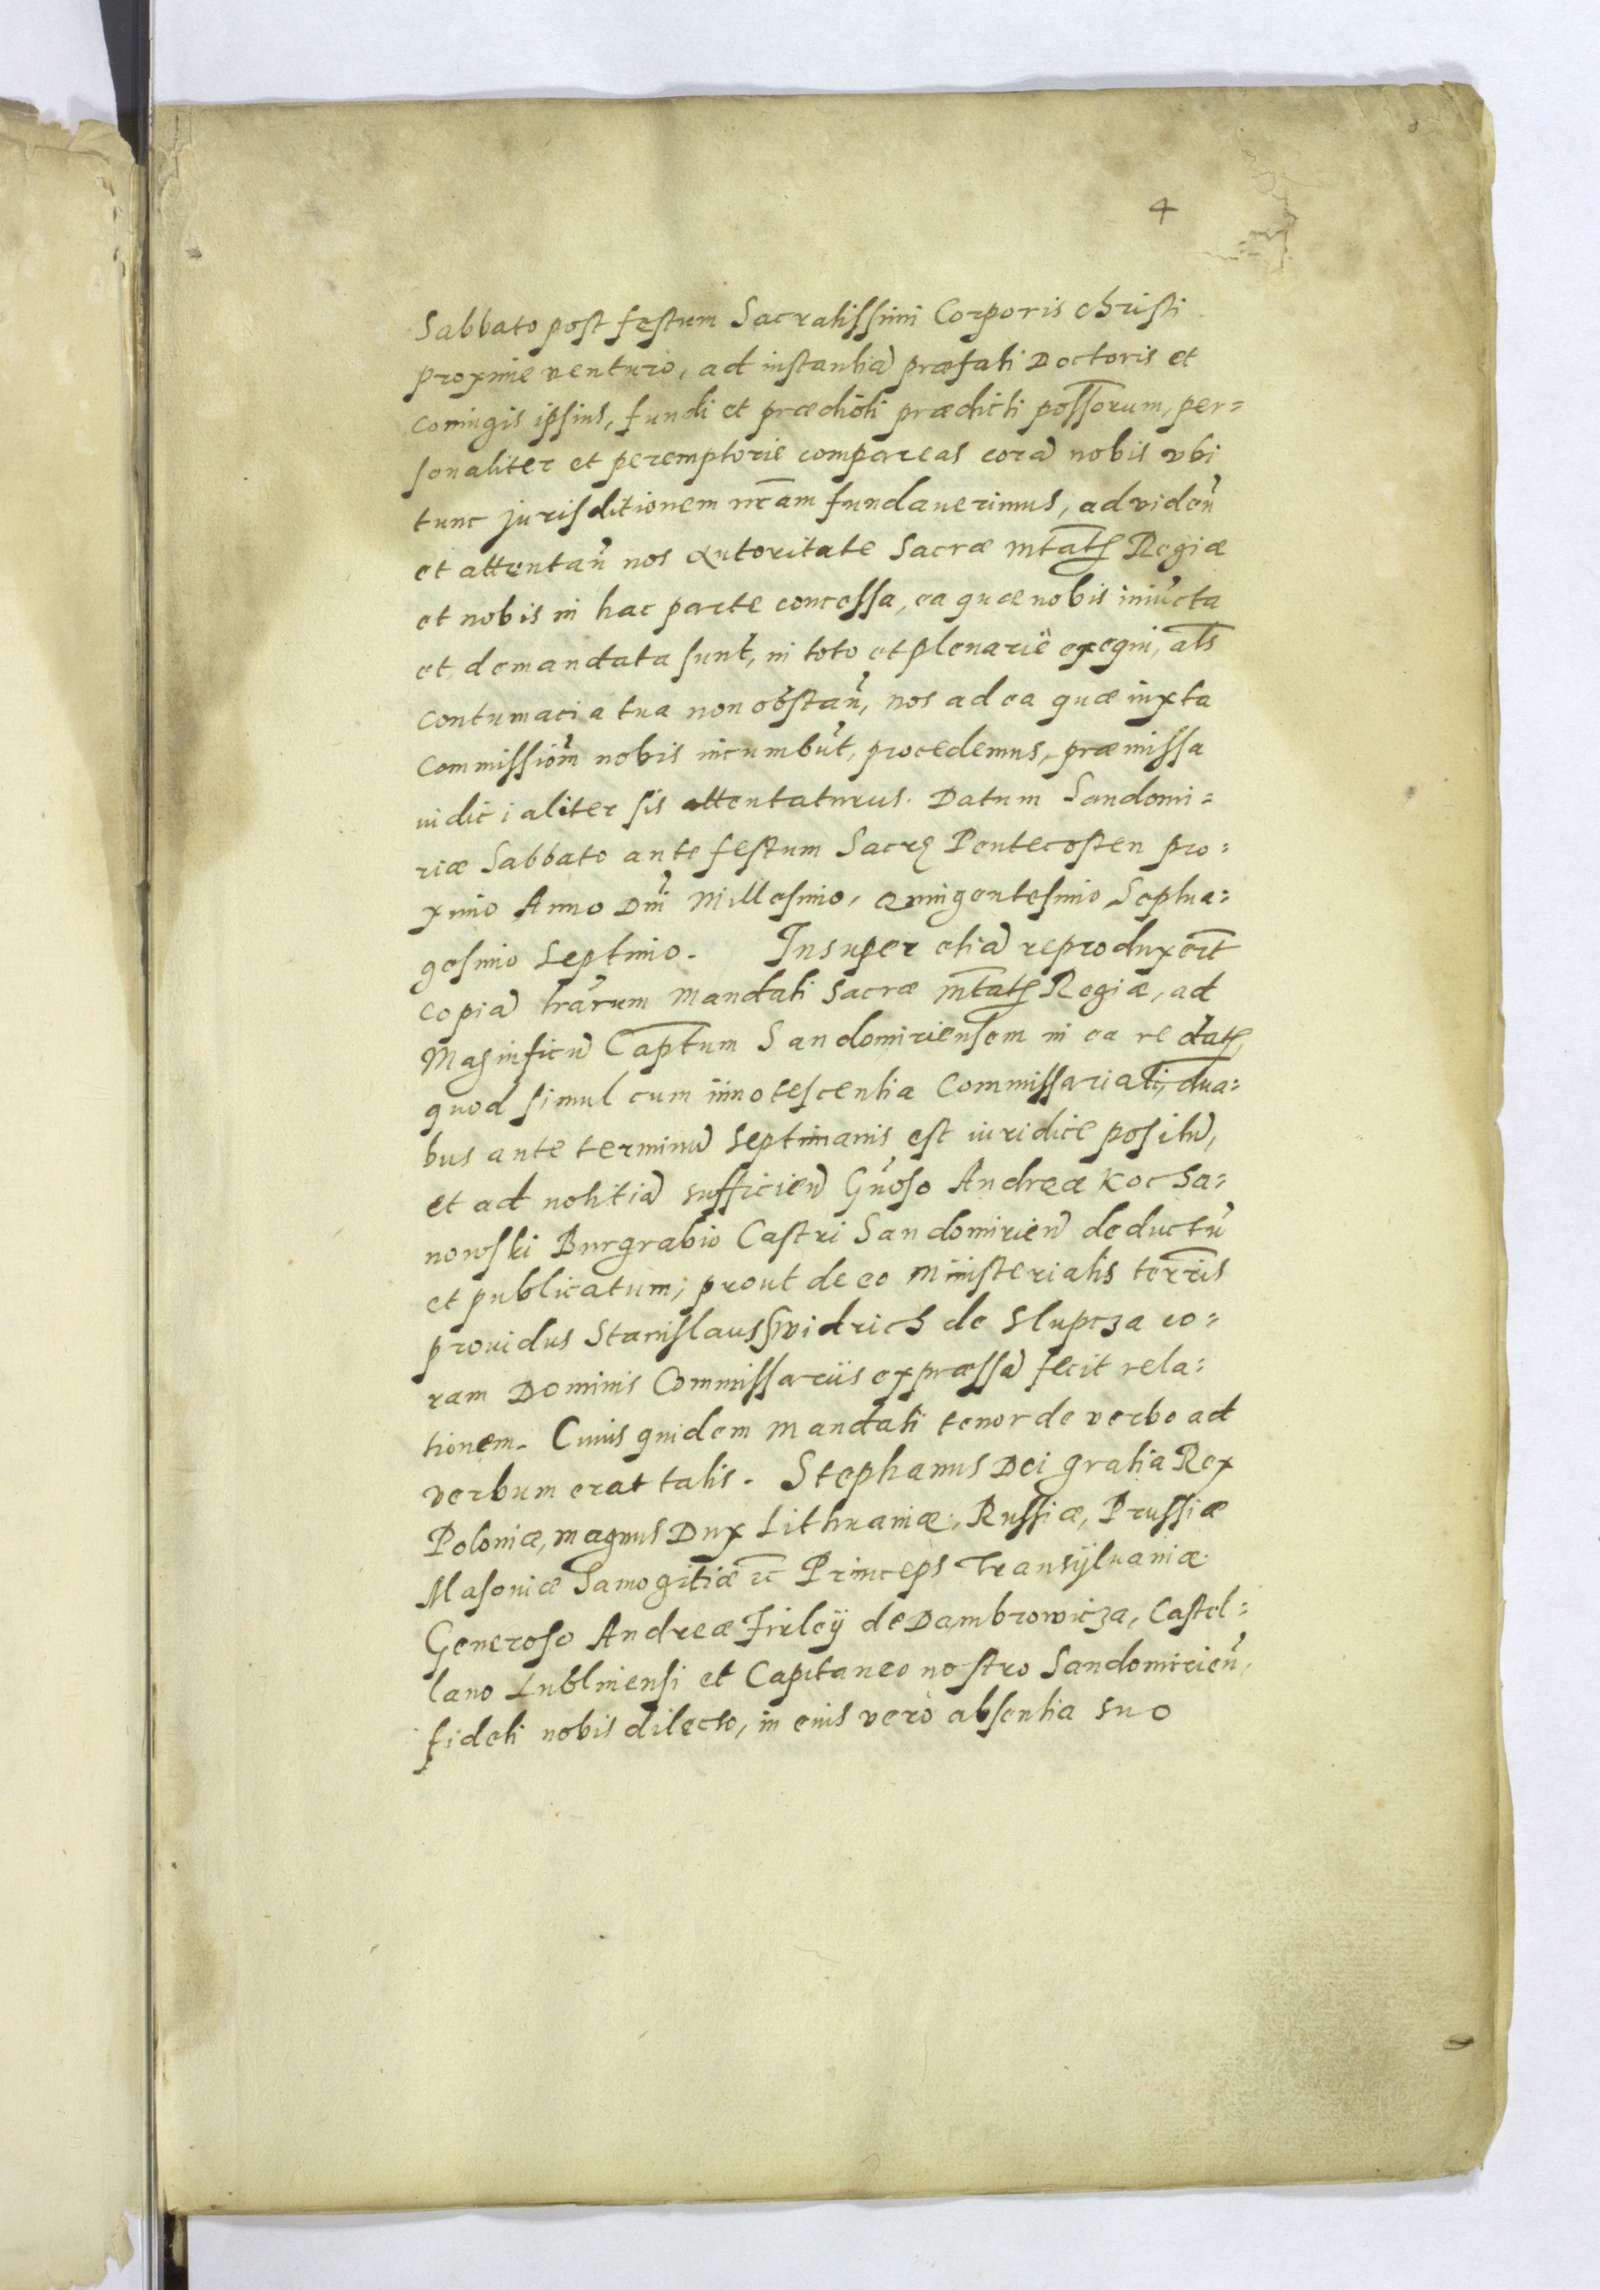 4
Sabbato post festum Sacratissimi Corporis Christi
proxime venturo, ad instantiã præfati Doctoris et
coniugis ipsius, fundi et prædicti prædicti possorum, per=
sonaliter et peremptorie compareas corã nobis vbi
tunc jurisditionem nr̃am fundauerimus, ad viden̄
et attentan̄ nos autoritate Sacræ Mtatis Regiæ
et nobis in hac parte concessa, ea quæ nobis iniūcta
et demandata sunt, in toto et plenariè exequi, als
contumacia tua non obstan̄, nos ad ea quæ iuxta
Commissiom̄ nobis incumbūt, procedemus, præmissa
iudicialiter sis attentaturus. Datum Sandomi=
riæ Sabbato ante festum Sacrę Pentecosten pro=
ximo Anno Dn̄i Millesimo, Quingentesimo Septua=
gesimo Septimo. Insuper etiã reproduxert̄
copiã lrãrum Mandati Sacræ Mtatis Regiæ, ad
Magnificũ Captum Sandomiriensem in ea re datis,
quod simul cum innotescentia Commissariali, dua=
bus ante terminũ septimanis est iuridice positũ,
et ad notitiã sufficien̄ Gn̄oso Andreæ Kocha=
nowski Burgrabio Castri Sandomirien̄ deductũ
et publicatum; prout de eo Ministerialis terris
prouidus Stanislaus Swidrich de Slupcza co=
ram Dominis Commissariis expressã fecit rela=
tionem. Cuius quidem Mandati tenor de verbo ad
verbum erat talis. Stephanus Dei gratia Rex
Poloniæ, magnus Dux Lithuaniæ, Russiæ, Prussiæ
Masoniæ Samogitiæ ꝛc Princeps Transÿluaniæ.
Generoso Andreæ Firleÿ de Dambrowicza, Castel=
lano Lublinensi et Capitaneo nostro Sandomirien̄,
fideli nobis dilecto, in eius verò absentia suo